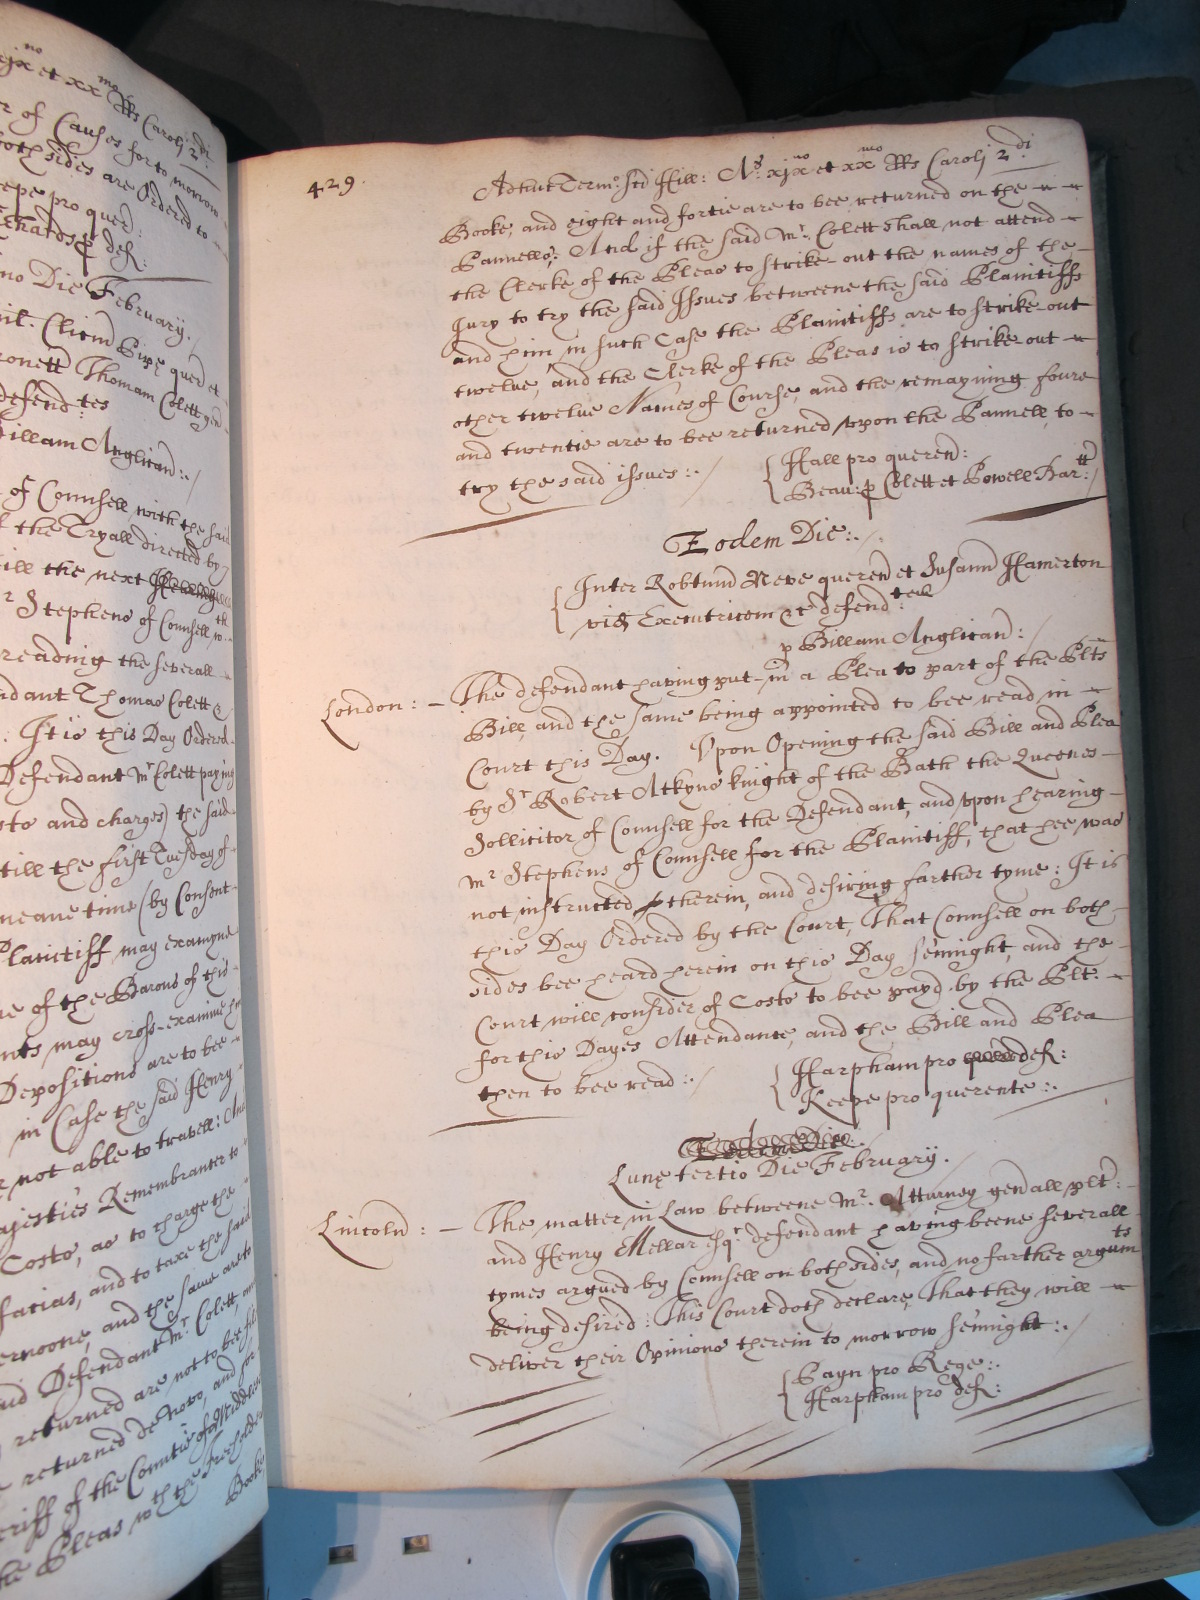 no
jx et xx mo RRs Caroli 2 di
r of Causes for to morrow
both sides are Ordered to
epe pro quer:
chards p def:
no Die February.
Willam Anglican:
of Counsell with the said
the Tryall directed by
ill the next
r Stephens of Counsell w th
reading the severall
ndant Thomas Colett &
: It is this Day Ordered
Defendant Mr Colett paying
sts and charges) the said
till the first Tuesday of
meane time (by Consent
Plaintiff may examyne
e of the Barons of this
nts may cross-examine
Depositions are to bee
in Case the said Henry
not able to travell: And
ajesties Remembrancer to
Costs, as to charge the
facias, and to taxe the said
ernoone, and the same are to
aid Defendant Mr. Colett,
returned are not to bee
returned de Novo, and
eriff of the Countie of Middlesex
he Pleas wth the Freeholders
Booke
429.
Adhuc Termo. Sci Hill: Ao. xjx no et xx mo RRs Caroli 2 di.
Booke, and eight and fortie are to bee returned on the
Pannells; And if the said Mr. Colett shall not attend
the Clerke of the Pleas to strike-out the names of the
Jury to try the said Issues betweene the said Plaintiffs
and him, in such Case the Plaintiffs are to strike-out
twelve, and the Clerke of the Pleas is to strike-out
other twelve Names of Course, and the remayning foure
and twentie are to bee returned upon the Pannell, to
try the said issues:./ { Hall pro queren:
{ Beau: p Colett et Powell Bar tt:/
Eodem Die:./
{ Inter Robtum Neve queren et Susann Hamerton
vid Executricem &c defend tes:
p Billam Anglican:/
London: - The defendant having put-in a Plea to part of the Plts
Bill, and the same being appointed to bee read in
Court this Day. Upon Opening the said Bill and Plea
by Sr Robert Atkyns Knight of the Bath the Queenes
Sollicitor of Counsell for the Defendant, and upon hearing
Mr Stephens of Counsell for the Plaintiff, that hee was
not instructed therein, and desiring farther tyme: It is
this Day Ordered by the Court, That Counsell on both
sides bee heard herein on this Day Sennight, and the
Court will consider of Costs to bee payd by the Plt:
for this Dayes Attendance, and the Bill and Plea
then to bee read:./ { Harpham pro def:
{ Keepe pro querente:.
Eodem Die:.
Lune tertio Die February.
Lincoln: - The matter in Law betweene Mr. Atturney gen all plt:
and Henry Mellar Esqr. defendant having beene severall
tymes argued by Counsell on both sides, and no farther argum ts
being desired: This Court doth declare, That they will
deliver their Opinions therein to morrow Sennight:./
{ Sayn pro Rege:.
{ Harpham pro def: